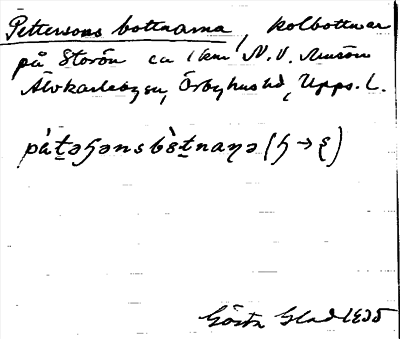 Pettersons bottnarna, kolbottnar
på Storön ca 1 km N.V. Amsön
Älvkarleby sn, Örbyhus hd, Upps. l.
pàt̠əɧənsbòt̠naɳə (ɧ → ʂ)
Gösta Glad 1935